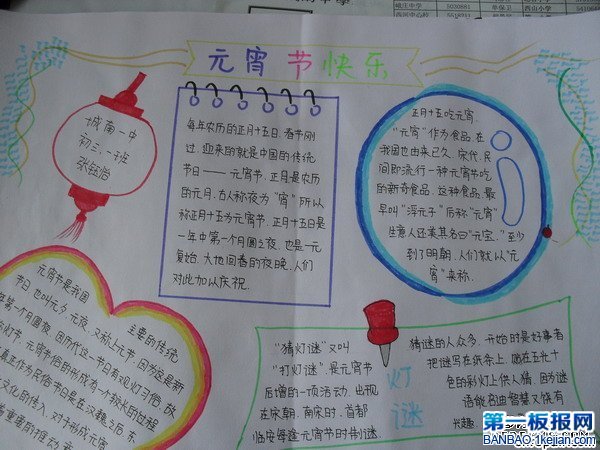 元宵节快乐
城南一中
初三、一班
张钰怡
每年农历的正月十五日.春节刚
过.迎来的就是中国的传统
节日——元宵节.正月是农历
的元月.古人称夜为“宵”所以
称正月十五为元宵节.正月十五日是
一年中第一个月圆之夜.也是一元
复始.大地回春的夜晚.人们
对此加以庆祝.
正月十五吃元宵
“元宵”作为食品.在
我国也由来已久.宋代.民
间即流行一种元宵节吃
的新奇食品.这种食品.最
早叫“浮元子”后称“元宵”
生意人还美其名曰“元宝.”至少
到了明朝.人们就以“元
宵”来称.
元宵节是我国
主要的传统
节日.也叫元夕.元夜.又称上元节.因为这是新
年第一个月圆夜.因历代这一节日有观灯习俗.故
称灯节.元宵节俗的形成有一个较长的过程
真正作为民俗节日是在汉魏之后.东
文化的传入.对于形成元宵
着重要的推动
“猜灯谜”又叫
“打灯谜”.是元宵节
后增的一项活动.出现
在宋朝.南宋时.首都
临安每逢元宵节时制谜.
灯谜
猜谜的人众多.开始时是好事者
把谜写在纸条上.贴在五光十
色的彩灯上供人猜.因为谜
语能启迪智慧又饶有
兴趣
第一板报网
BANBAO.1kejian.com